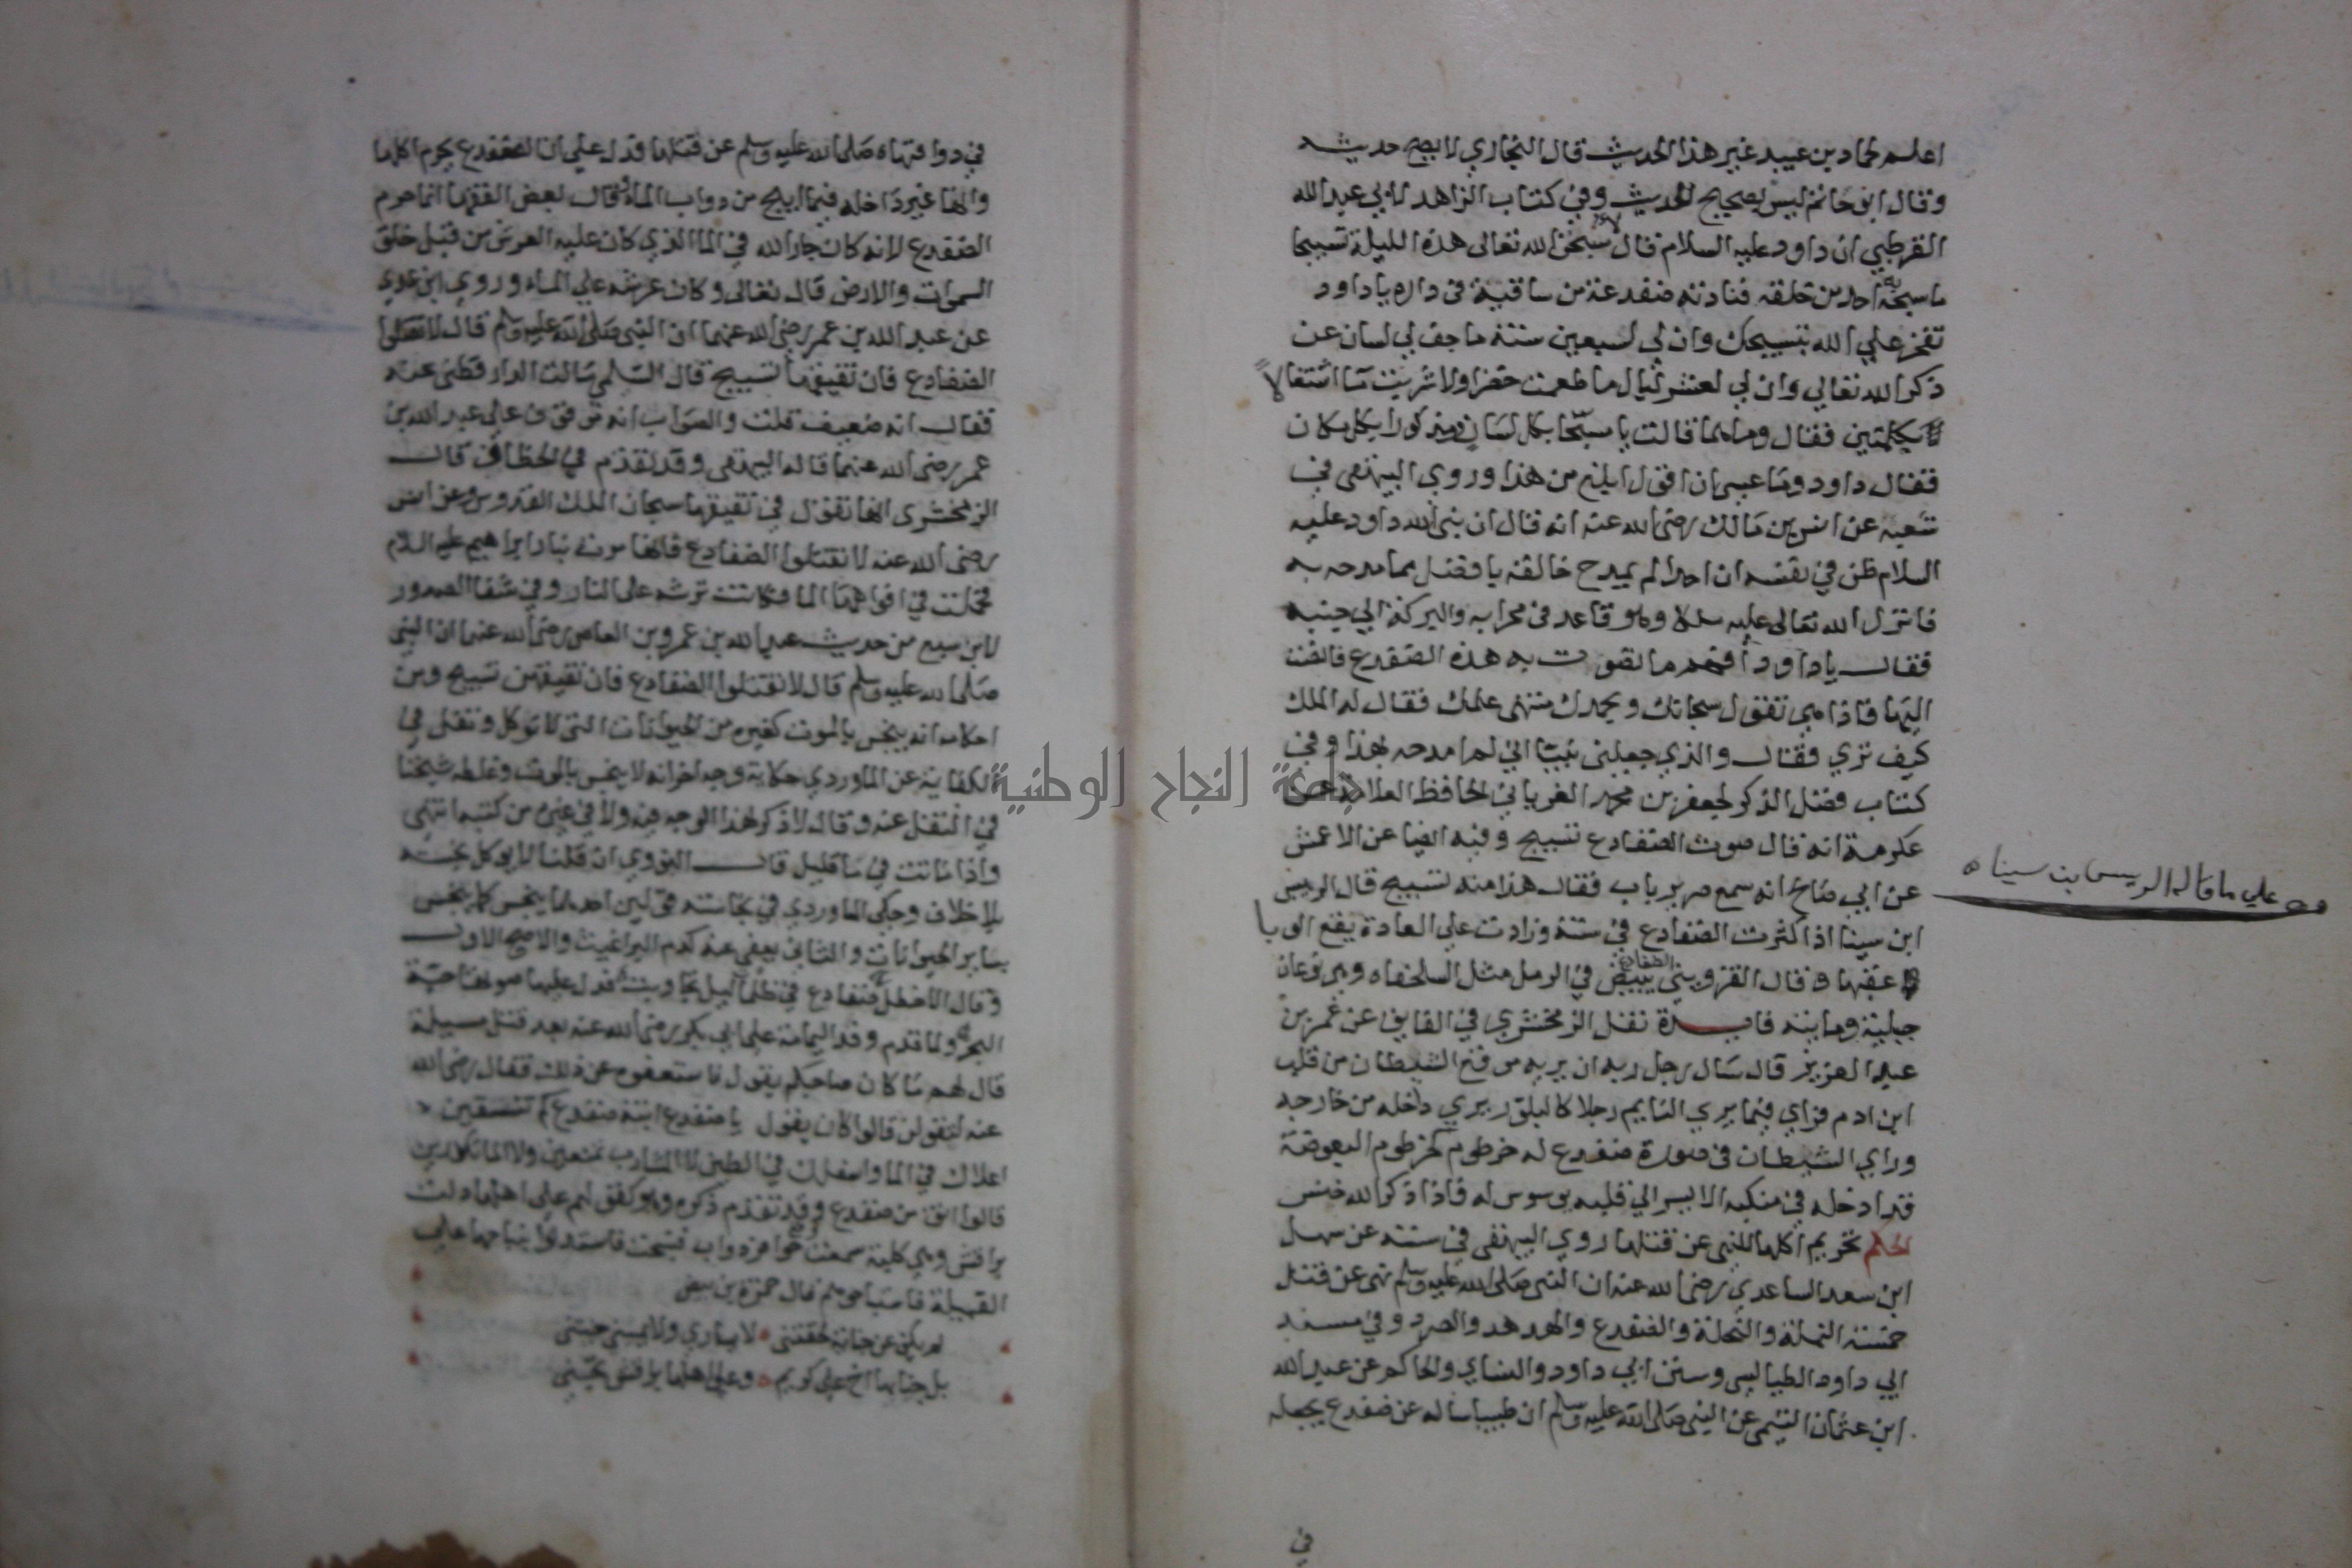 اعلم لحماد بن عبيد غير هذا الحديث قال البخاري لا يصح حديثه
وقال ابو حاتم ليس بصحيح الحديث وفي كتاب الزاهد لابي عبد الله
القرطبي ان داود عليه السلام قال لاسبحن الله تعالى هذه الليلة تسبيحا
ما سبحه به احد من خلقه فنادته ضفدعة من ساقية في داره يا داود
تفخر علي الله بتسبيحك وان لي لسبعين سنة ما جف لي لسان عن
ذكر الله تعالي وان لي لعشر ليال ما طعمت خضرا ولا شربت ما اشتغالا
بكلمتين فقال وما هما قالت يا مسبحا بكل لسان ومذكورا بكل مكان
فقال داود وما عسى ان اقول ابلغ من هذا وروي البيهقي في
شعبه عن انس بن مالك رضي الله عنه انه قال ان نبي الله داود عليه
السلام ظن في نفسه ان احدا لم يمدح خالقه بافضل مما مدحه به
فانزل الله تعالى عليه ملكا وهو قاعد في محرابه والبركة الي جنبه
فقال يا داود افهم ما تصوت به هذه الضفدع فانصت
اليها فاذا هي تقول سبحانك وبحمدك منتهى علمك فقال له الملك
كيف تري فقال والذي جعلني نبيا اني لم امدحه بهذا وفي
كتاب فضل الذكر لجعفر بن محمد الفرياني الحافظ العلامة عن
عكرمة انه قال صوت الضفادع تسبيح وفيه ايضا عن الاعمش
عن ابي صالح انه سمع صرير باب فقال هذا منه تسبيح قال الرييس
وه علي ما قاله الرييس ابن سيناه
ابن سينا اذا كثرت الضفادع في سنة وزادت علي العادة يقع الوبا
عقبها وقال القزويني الضفادع تبيض في الرمل مثل السلحفاه وهي نوعان
جبلية ومايية فايدة نقل الزمخشري في الفايق عن عمر بن
عبد العزيز قال سال رجل ربه ان يريه موضع الشيطان من قلب
ابن ادم فراي فيما يري النايم رجلا كالبلور يري داخله من خارجه
وراي الشيطان في صورة ضفدع له خرطوم كخرطوم البعوضة
قد ادخله في منكبه الايسر الي قلبه يوسوس له فاذا ذكر الله خنس
الحكم تحريم اكلها للنهى عن قتلها روي البيهقي في سننه عن سهل
ابن سعد الساعدي رضي الله عنه ان النبي صلى الله عليه وسلم نهى عن قتل
خمسة النملة والنحلة والضفدع والهدهد والصرد وفي مسند
ابي داود الطيالسي وسنن ابي داود والنساي والحاكم عن عبد الله
ابن عثمان التيمي عن النبي صلى الله عليه وسلم ان طبيبا ساله عن ضفدع يجعله
في
في دوا فنهاه صلى الله عليه وسلم عن قتلها فدل علي ان الضفدع يحرم اكلها
وانها غير داخله فيما ابيح من دواب الماء قال بعض الفقها انما حرم
الضفدع لانه كان جار الله في الما الذي كان عليه العرش من قبل خلق
السموات والارض قال تعالى وكان عرشه علي الماء وروي ابن عدي
عن عبد الله بن عمر رضي الله عنهما ان النبي صلى الله عليه وسلم قال لا تقتلوا
الضفادع فان نقيقها تسبيح قال السلمي سالت الدارقطني عنه
فقال انه ضعيف قلت والصواب انه موقوف علي عبد الله بن
عمر رضي الله عنهما قاله البيهقي وقد تقدم في الخطاف قال
الزمخشري انها تقول في نقيقها سبحان الملك القدوس وعن انس
رضي الله عنه لا تقتلوا الضفادع فانها مرت بنار ابراهيم عليه السلام
فحملت في افواهها الما وكانت ترشه على النار وفي شفا الصدور
لابن سبع من حديث عبد الله بن عمرو بن العاص رضي الله عنهما ان النبي
صلى الله عليه وسلم قال لا تقتلوا الضفادع فان نقيقهن تسبيح ومن
احكامه انه ينجس بالموت كغيره من الحيوانات التي لا توكل ونقل في
الكفاية عن الماوردي حكاية وجه اخر انه لا ينجس بالموت وغلطه شيخنا
في النقل عنه وقال لا ذكر لهذا الوجه فيه ولا في غيره من كتبه انتهى
واذا ماتت في ما قليل قال النووي ان قلنا لا يوكل نجسته
بلا خلاف وحكي الماوردي في نجاسته قولين احدهما ينجس كما ينجس
بساير الحيوانات والثاني يعفى عنه كدم البراغيث والاصح الاول
وقال الاخطل ضفادع في ظلما ليل تجاوبت فدل عليها صوتها حية
البحر ولما قدم وفد اليمامة علي ابي بكر رضي الله عنه بعد قتل مسيلمة
قال لهم ما كان صاحبكم يقول فاستعفوه عن ذلك فقال رضي الله
عنه لتقولن قالوا كان يقول يا ضفدع ابنة ضفدع كم تنقنقين
اعلاك في الما واسفلك في الطين لا الشارب تمنعين ولا الما تكدرين
قالوا انق من ضفدع وقد تقدم ذكره وهو كقولهم علي اهلها دلت
براقش وهي كلبة سمعت حوافر دواب فنبحت فاستدلوا بنباحها علي
القبيلة فاستباحوهم قال حمزة بن بيض
لم يكن عن جناية لحقتني لا يساري ولا يميني جنتني
بل جناها اخ علي كريم وعلي اهلها براقش تجني
جامعة النجاح الوطنية